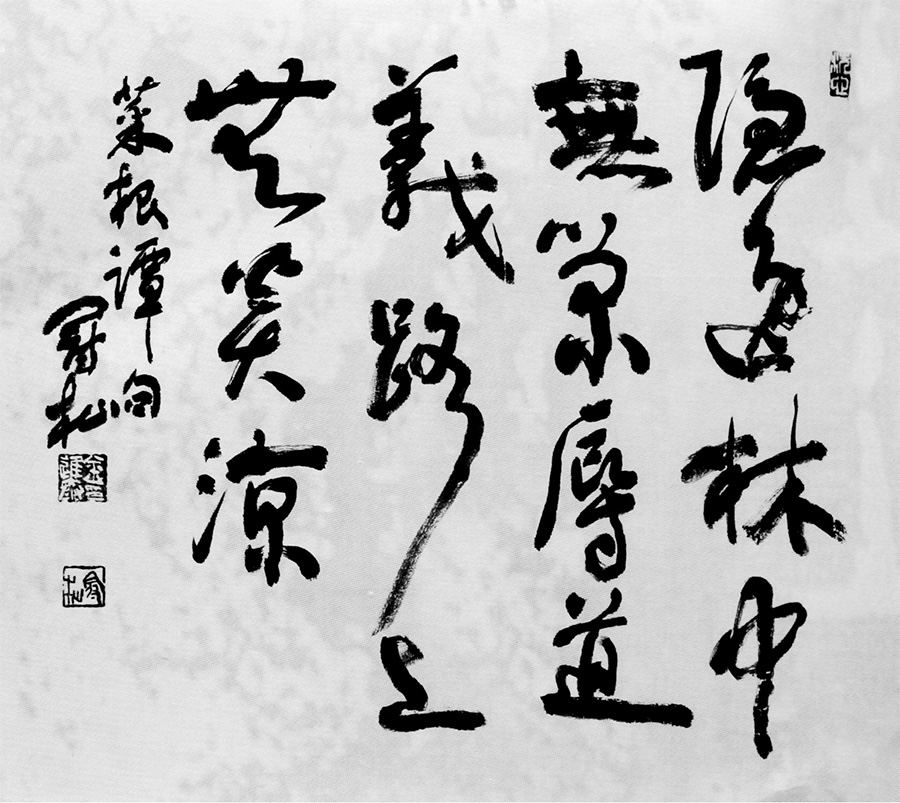 隐逸林中
無荣辱道
義路上
無炎涼
菜根谭句
冠松